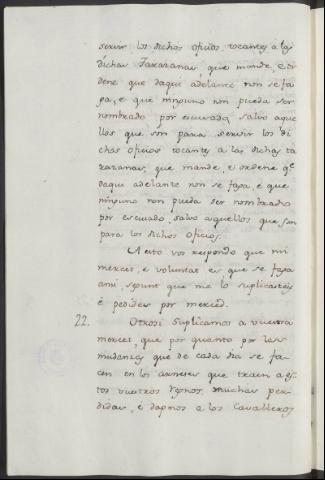 servir los dichos oficios tocantes a las
dichas Taraзanas, que mande, e or
dene que daqui adelante non se fa
ga, e que ninguno non pueda ser
nombrado por escusado, salvo aque
llos que son para servir los di
chos oficios tocantes a las dichas ta
razanas, que mande, e ordene qe
daqui adelante non se faga, e que
ninguno non pueda ser nombrado
por escusado, salvo aquellos que son
para los dichos oficios.
A esto vos respondo que mi
merced, e voluntat es que se faga
ansi, segunt que me lo suplicasteis
e pedides por merced.
22. Otrosi suplicamos a vuestra
merced, que por quanto por las
mudanzas que de cada dia se fa-
cen en los arneses que traen a es-
tos vuestros regnos, muchas per-
didas, e dapnos a los Cavalleros